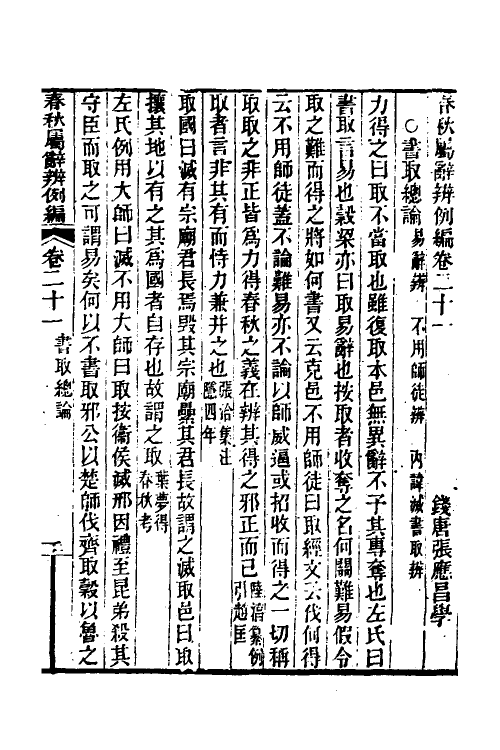 春秋屬辭辨例編卷二十一
錢唐張應昌學
○書取總論 易辭辨 不用師徒辨 內諱滅書取辨
力得之曰取不當取也雖復取本邑無異辭不予其專奪也左氏曰
書取言易也穀梁亦曰取易辭也按取者收奪之名何關難易假令
取之難而得之將如何書又云克邑不用師徒曰取經文云伐何得
云不用師徒蓋不論難易亦不論以師威逼或招收而得之一切稱
取取之非正皆爲力得春秋之義在辨其得之邪正而已 陸淳纂例引趙匡
取者言非其有而恃力兼并之也 張洽集注隱四年
取國曰滅有宗廟君長焉毀其宗廟纍其君長故謂之滅取邑曰取
攘其地以有之其爲國者自存也故謂之取 葉夢得春秋考
左氏例用大師曰滅不用大師曰取按衞侯滅邢因禮至昆弟殺其
守臣而取之可謂易矣何以不書取邪公以楚師伐齊取穀以魯之
春秋屬辭辨例編
卷二十一 書取總論
一